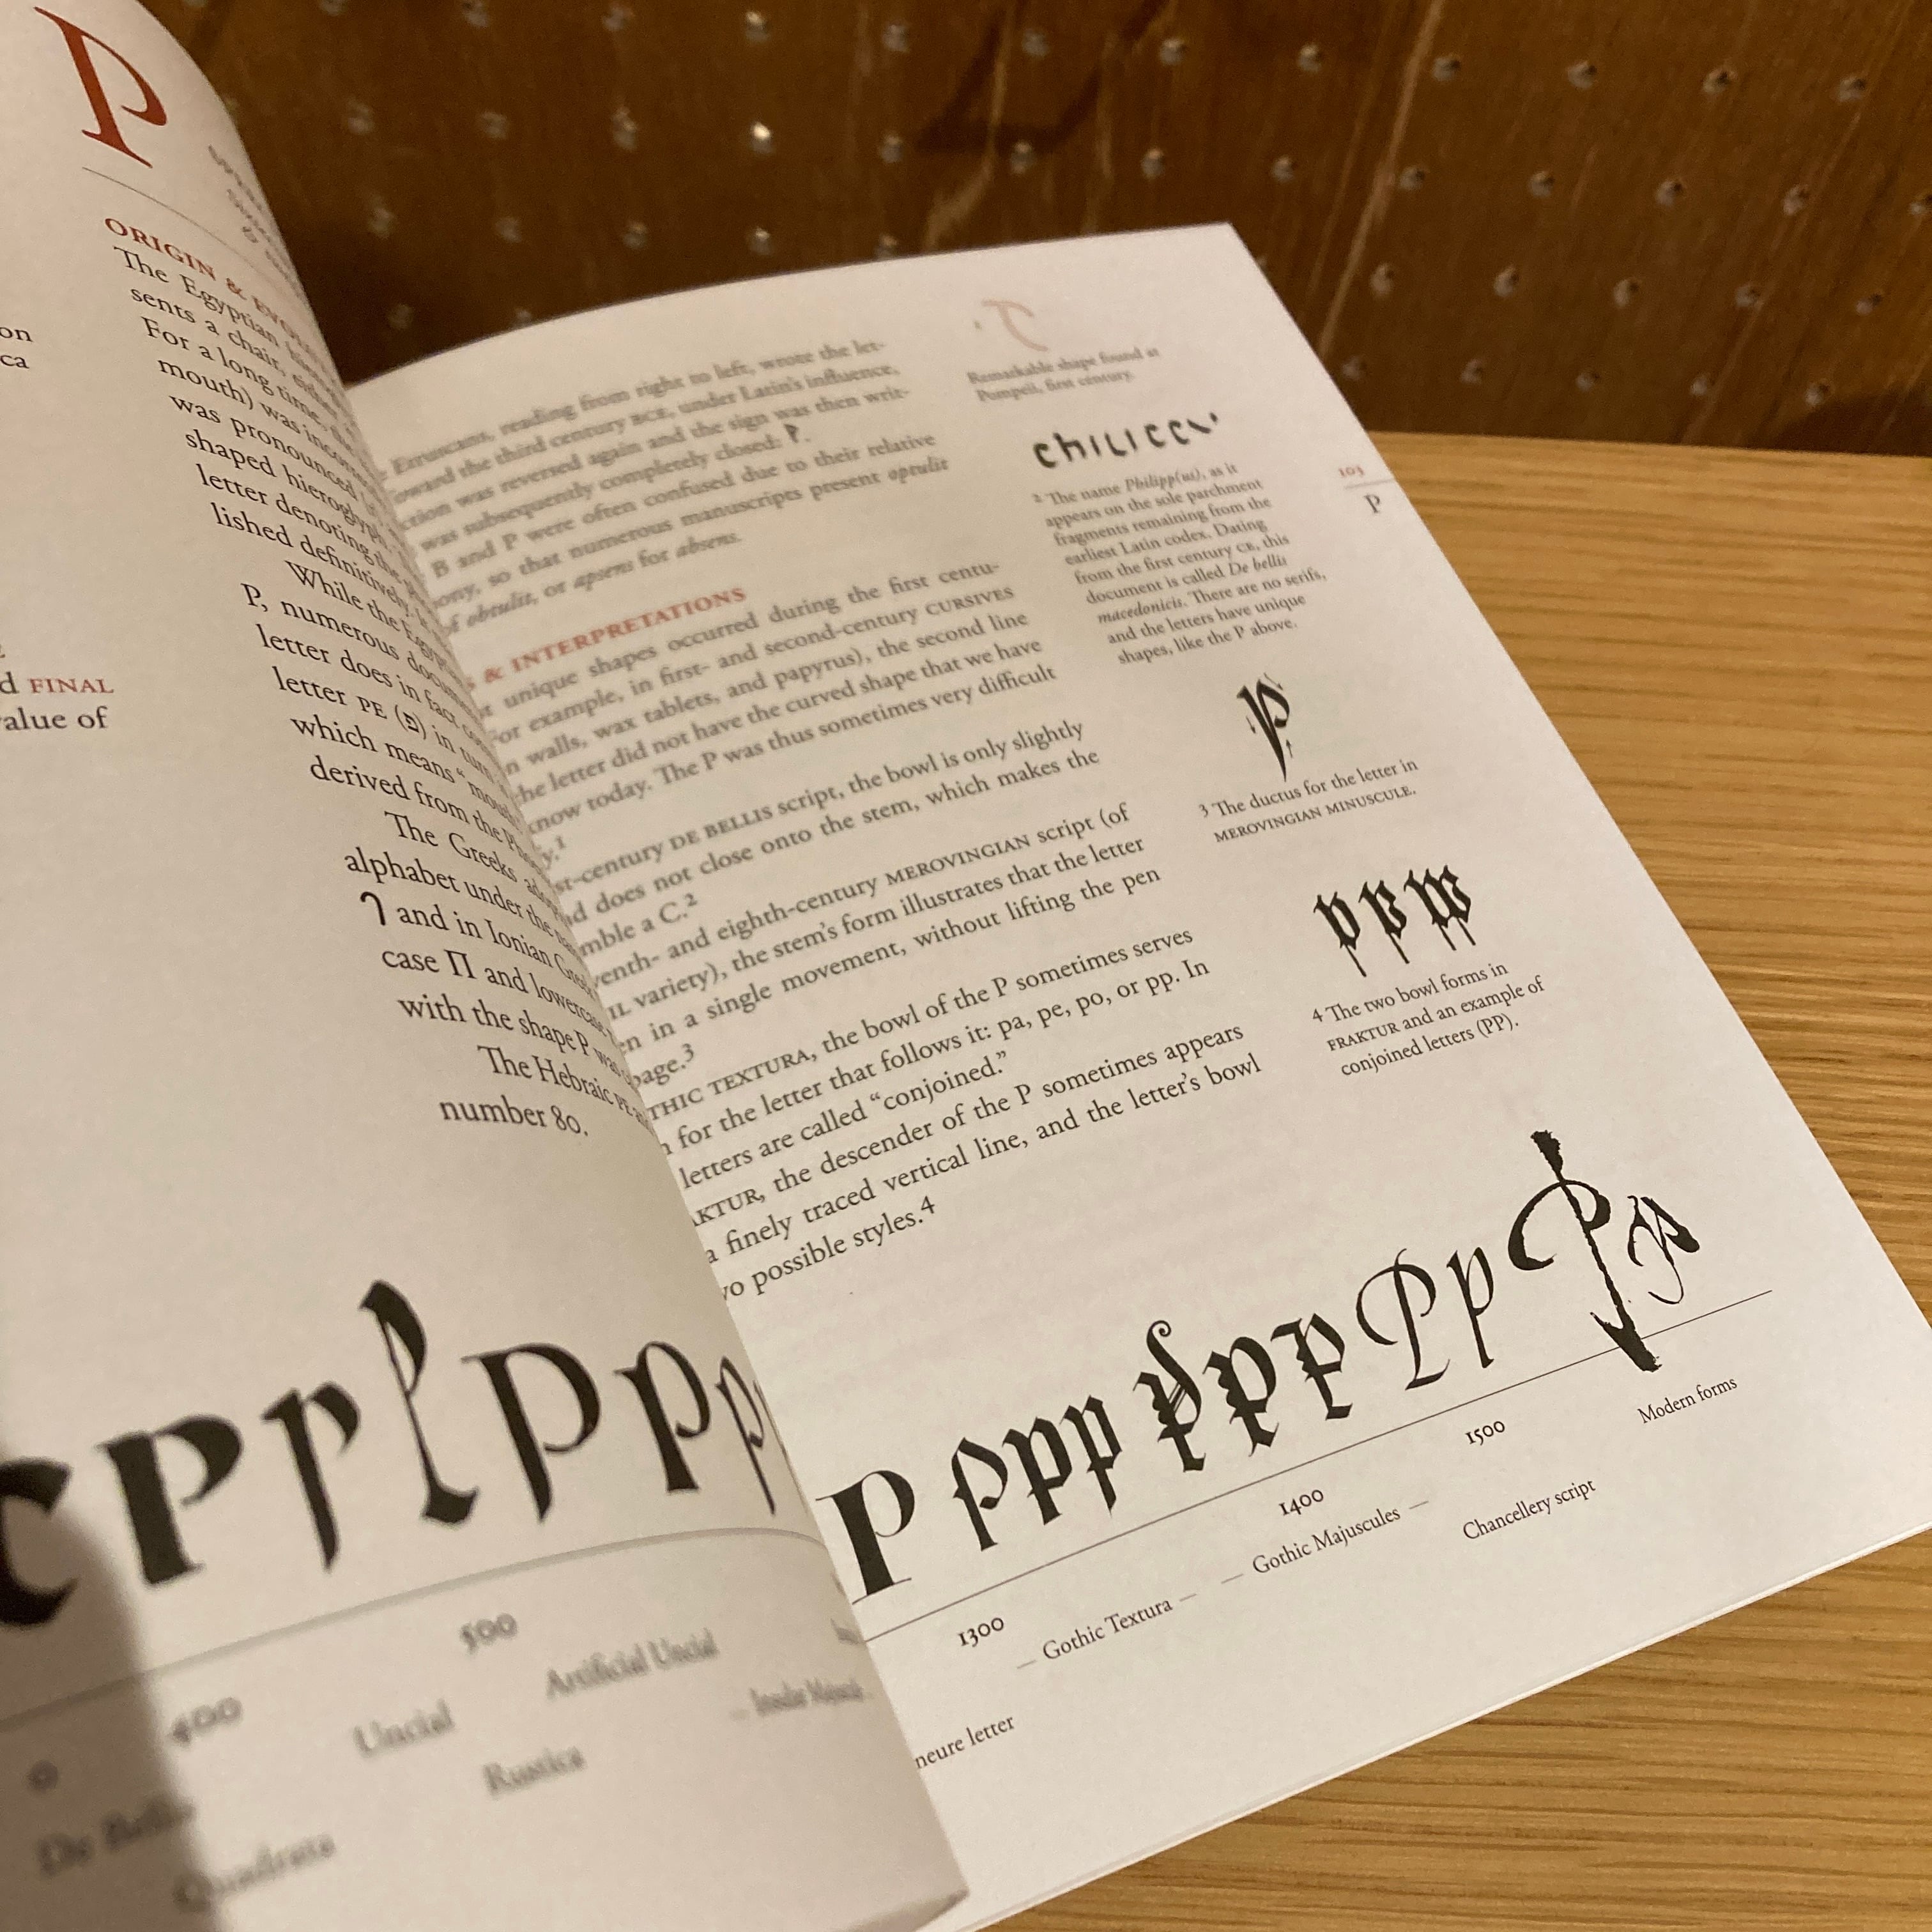 P
ORIGIN &
The Egyptian
sents a chair,
For a long time,
mouth) was
was pronounced
shaped hieroglyph,
letter denoting the
lished definitively.
While the
P, numerous
letter does in fact
letter PE (פ) in turn
which means “mouth
derived from the
The Greeks
alphabet under the
and in Ionian
case Π and lowercase
with the shape P was
The Hebraic PE
number 80.
on
ca
d FINAL
value of
400
500
Uncial
Artificial Uncial
Rustica
De
Quadrata
Etruscans, reading from right to left, wrote the let-
oward the third century BCE, under Latin's influence,
ction was reversed again and the sign was then writ-
was subsequently completely closed: P.
B and P were often confused due to their relative
ony, so that numerous manuscripts present optulit
of obtulit, or apsens for absens.
& INTERPRETATIONS
unique shapes occurred during the first centu-
For example, in first- and second-century CURSIVES
n walls, wax tablets, and papyrus), the second line
he letter did not have the curved shape that we have
know today. The P was thus sometimes very difficult
y.1
st-century DE BELLIS script, the bowl is only slightly
nd does not close onto the stem, which makes the
mble a C.2
venth- and eighth-century MEROVINGIAN script (of
IL variety), the stem’s form illustrates that the letter
en in a single movement, without lifting the pen
page.3
THIC TEXTURA, the bowl of the P sometimes serves
n for the letter that follows it: pa, pe, po, or pp. In
letters are called “conjoined.”
AKTUR, the descender of the P sometimes appears
a finely traced vertical line, and the letter’s bowl
wo possible styles.4
Remarkable shape found at
Pompeii, first century.
2 The name Philipp(us), as it
appears on the sole parchment
fragments remaining from the
earliest Latin codex. Dating
from the first century CE, this
document is called De bellis
macedonicis. There are no serifs,
and the letters have unique
shapes, like the P above.
103
P
3 The ductus for the letter in
MEROVINGIAN MINUSCULE.
4 The two bowl forms in
FRAKTUR and an example of
conjoined letters (PP).
1300
1400
1500
Modern forms
— Gothic Textura —
— Gothic Majuscules —
Chancellery script
neure letter